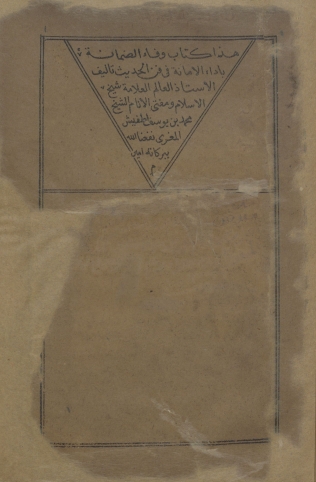 هذا كتاب وفاء الضمانة
باداء الامانة في فن الحديث تاليف
الاستاذ العالم العلامة شيخ
الاسلام ومفتى الانام الشيخ
محمد بن يوسف اطفيش
المغربى نفعنا الله
ببركاته امين
م